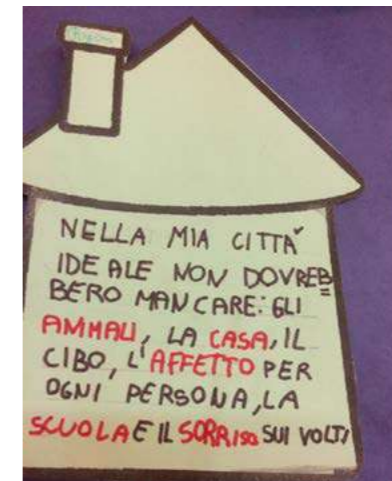 NELLA MIA CITTÀ
IDEALE NON DOVREB=
BERO MANCARE: GLI
ANIMALI, LA CASA, IL
CIBO, L'AFFETTO PER
OGNI PERSONA, LA
SCUOLA E IL SORRISO SUI VOLTI